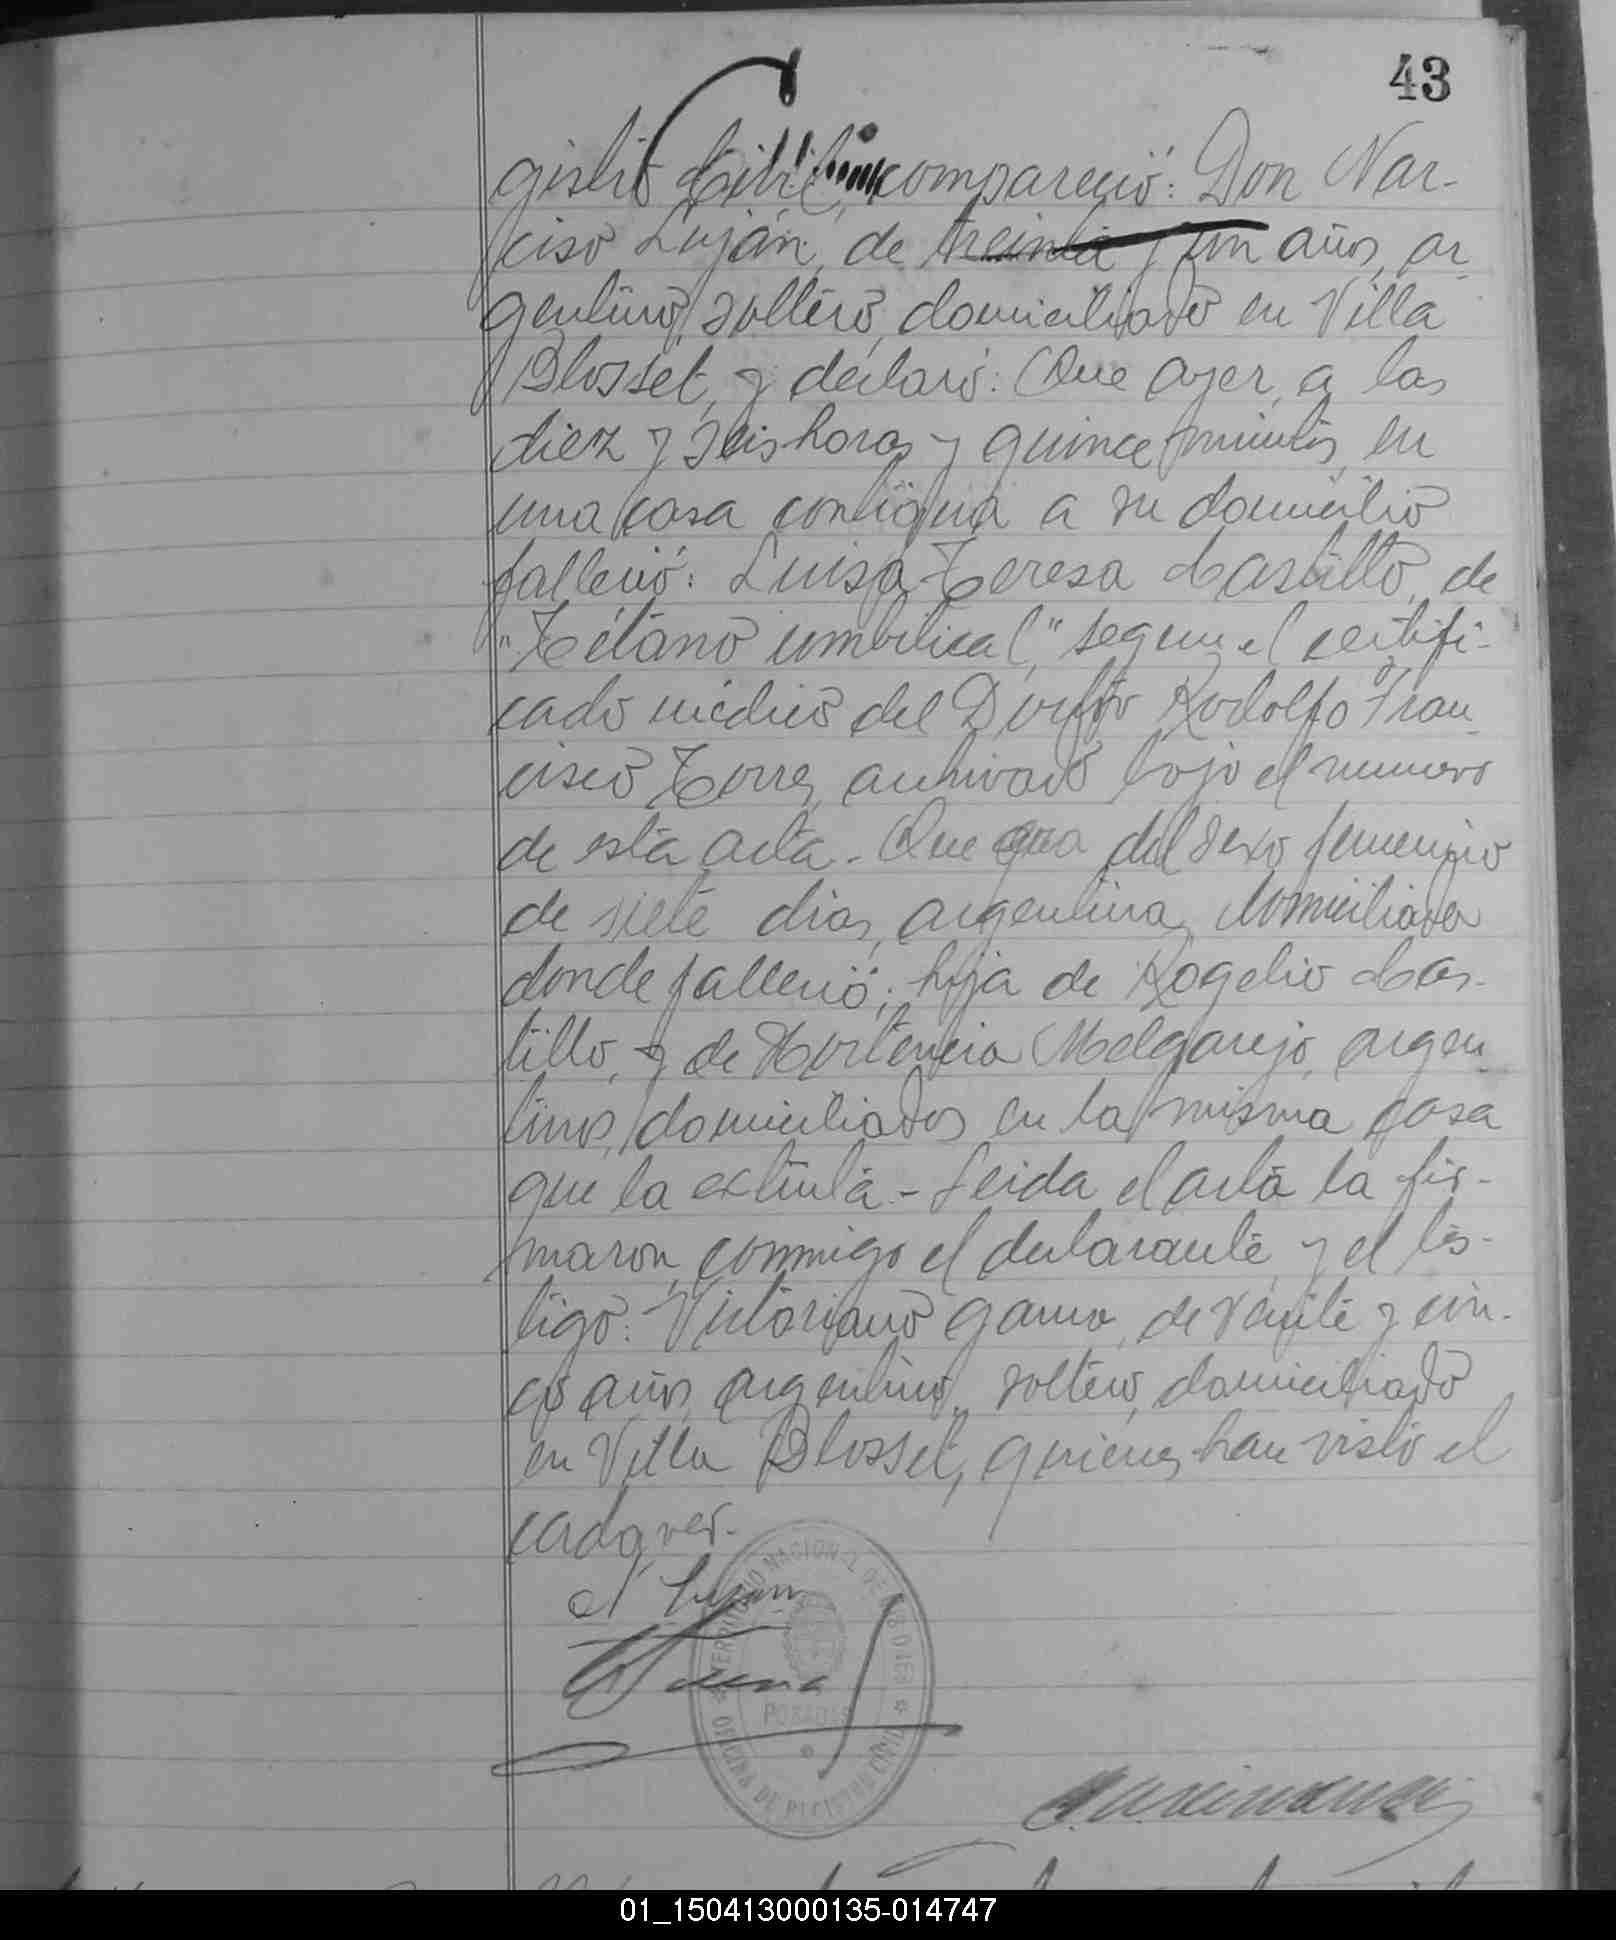 43
gistro Civil, compareció: Don Nar-
ciso Luján, de treinta y un años, ar-
gentino, soltero, domiciliado en Villa
Blosset, y declaró: Que ayer, a las
diez y seis horas y quince minutos, en
una casa contigua a su domicilio
falleció: Luisa Teresa Castillo, de
"Tétano umbilical," segun el certifi-
cado médico del Doctor Rodolfo Fran-
cisco Torres, archivado bajo el numero
de esta acta.- Que era del sexo femenino
de siete dias, argentina, domiciliada
donde falleció; hija de Rogelio Cas-
tillo, y de Hortencia Melgarejo, argen-
tinos, domiciliados en la misma casa
que la extinta.- Leida el acta la fir-
maron, conmigo el declarante, y el tes-
tigo: Victoriano de veinte y cin-
co años, argentino, soltero, domiciliado
en Villa Blosset, quienes han visto el
cadaver.-
N Lujan
TERRITORIO NACIONAL DE MISIONES
POSADAS
OFICINA DE REGISTRO CIVIL
01_150413000135-014747